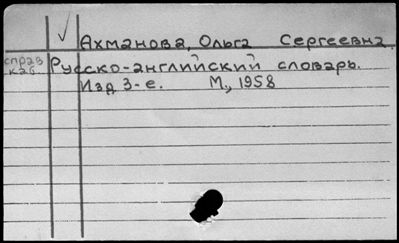 Ахманова, Ольга Сергеевна.
справ Русско-английский словарь.
каб Изд 3-е. М., 1958